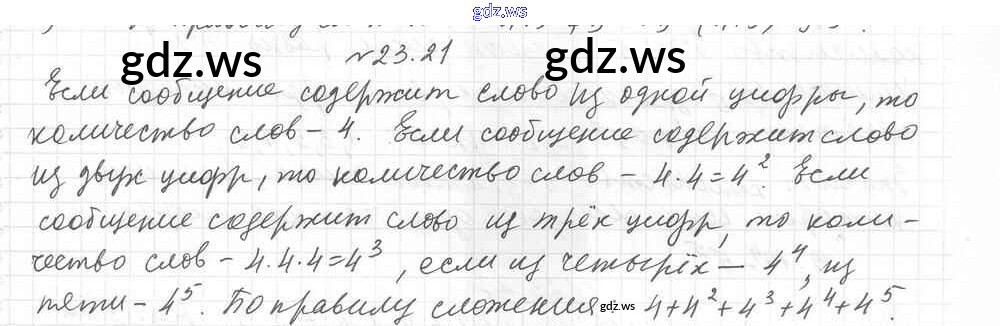 gdz.ws
№23.21
gdz.ws gdz.ws
Если сообщение содержит слово из одной цифры, то
количество слов – 4. Если сообщение содержит слово
из двух цифр, то количество слов – 4·4=4² Если
сообщение содержит слово из трёх цифр, то коли-
чество слов – 4·4·4=4³, если из четырёх – 4⁴, из
пяти – 4⁵. По правилу сложения 4+4²+4³+4⁴+4⁵.
gdz.ws gdz.ws